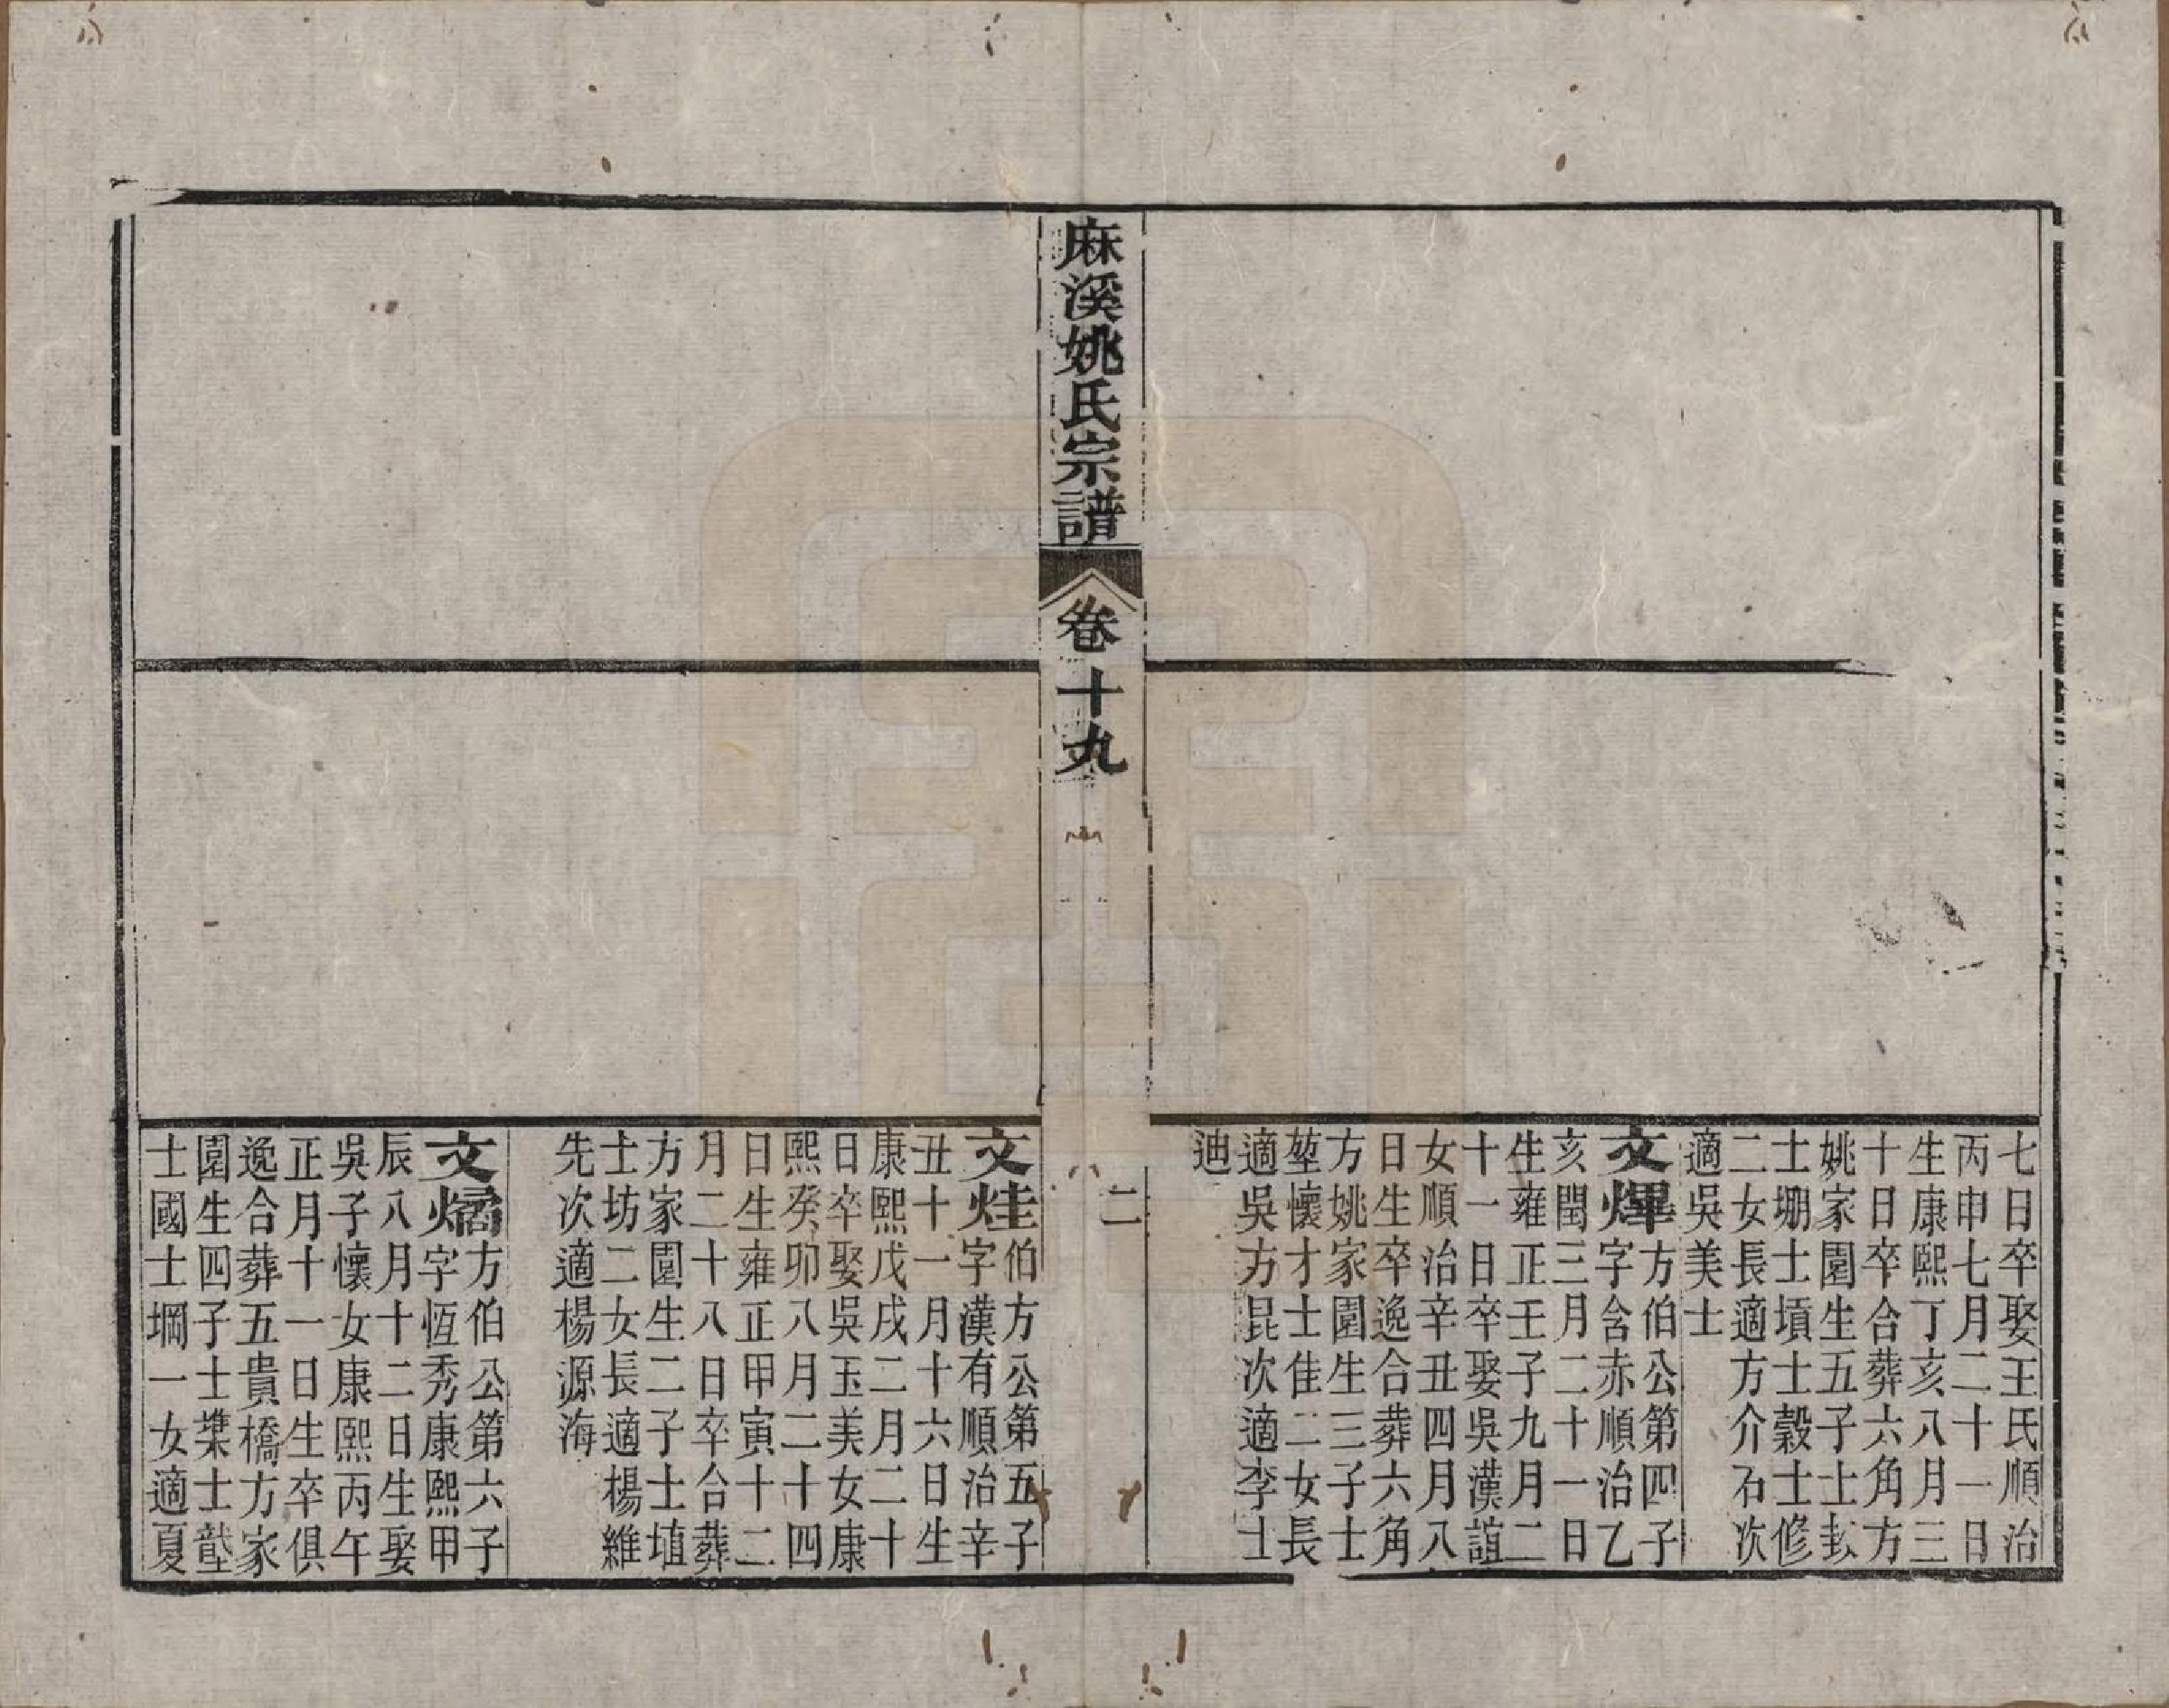 七日卒娶王氏順治
丙申七月二十一日
生康熙丁亥八月三
十日卒合葬六角方
姚家園生五子士㙇
士堋士墳士穀士修
二女長適方介石次
適吳美士
文熚方伯公第四子
字含赤順治乙
亥閏三月二十一日
生雍正壬子九月二
十一日卒娶吳漢誼
女順治辛丑四月八
日生卒逸合葬六角
方姚家園生三子士
堃懷才士佳二女長
適吳方昆次適李士
迪
麻溪姚氏宗譜
卷十九
二
文烓伯方公第五子
字漢有順治辛
丑十一月十六日生
康熙戊戌二月二十
日卒娶吳玉美女康
熙癸卯八月二十四
日生雍正甲寅十二
月二十八日卒合葬
方家園生二子士埴
士坊二女長適楊維
先次適楊源海
文燏方伯公第六子
字恆秀康熙甲
辰八月十二日生娶
吳子懷女康熙丙午
正月十一日生卒俱
逸合葬五貴橋方家
園生四子士㙫士㙻
士國士堈一女適夏